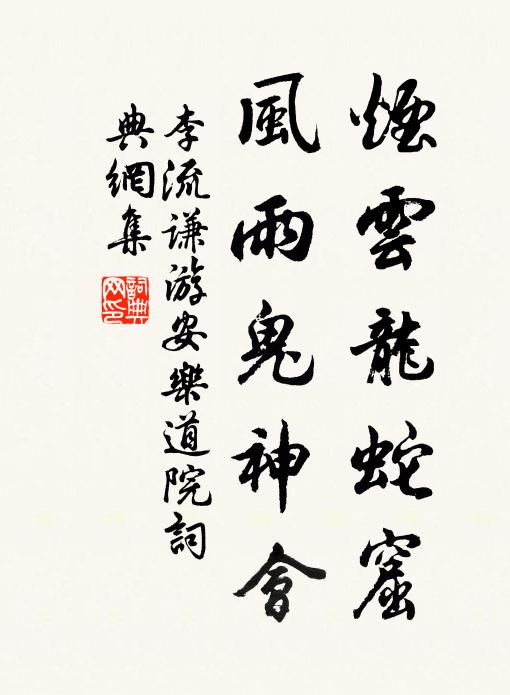 煙雲龍蛇窟
風雨鬼神會
李流谦游安樂道院詞
典網集
詞典
网印